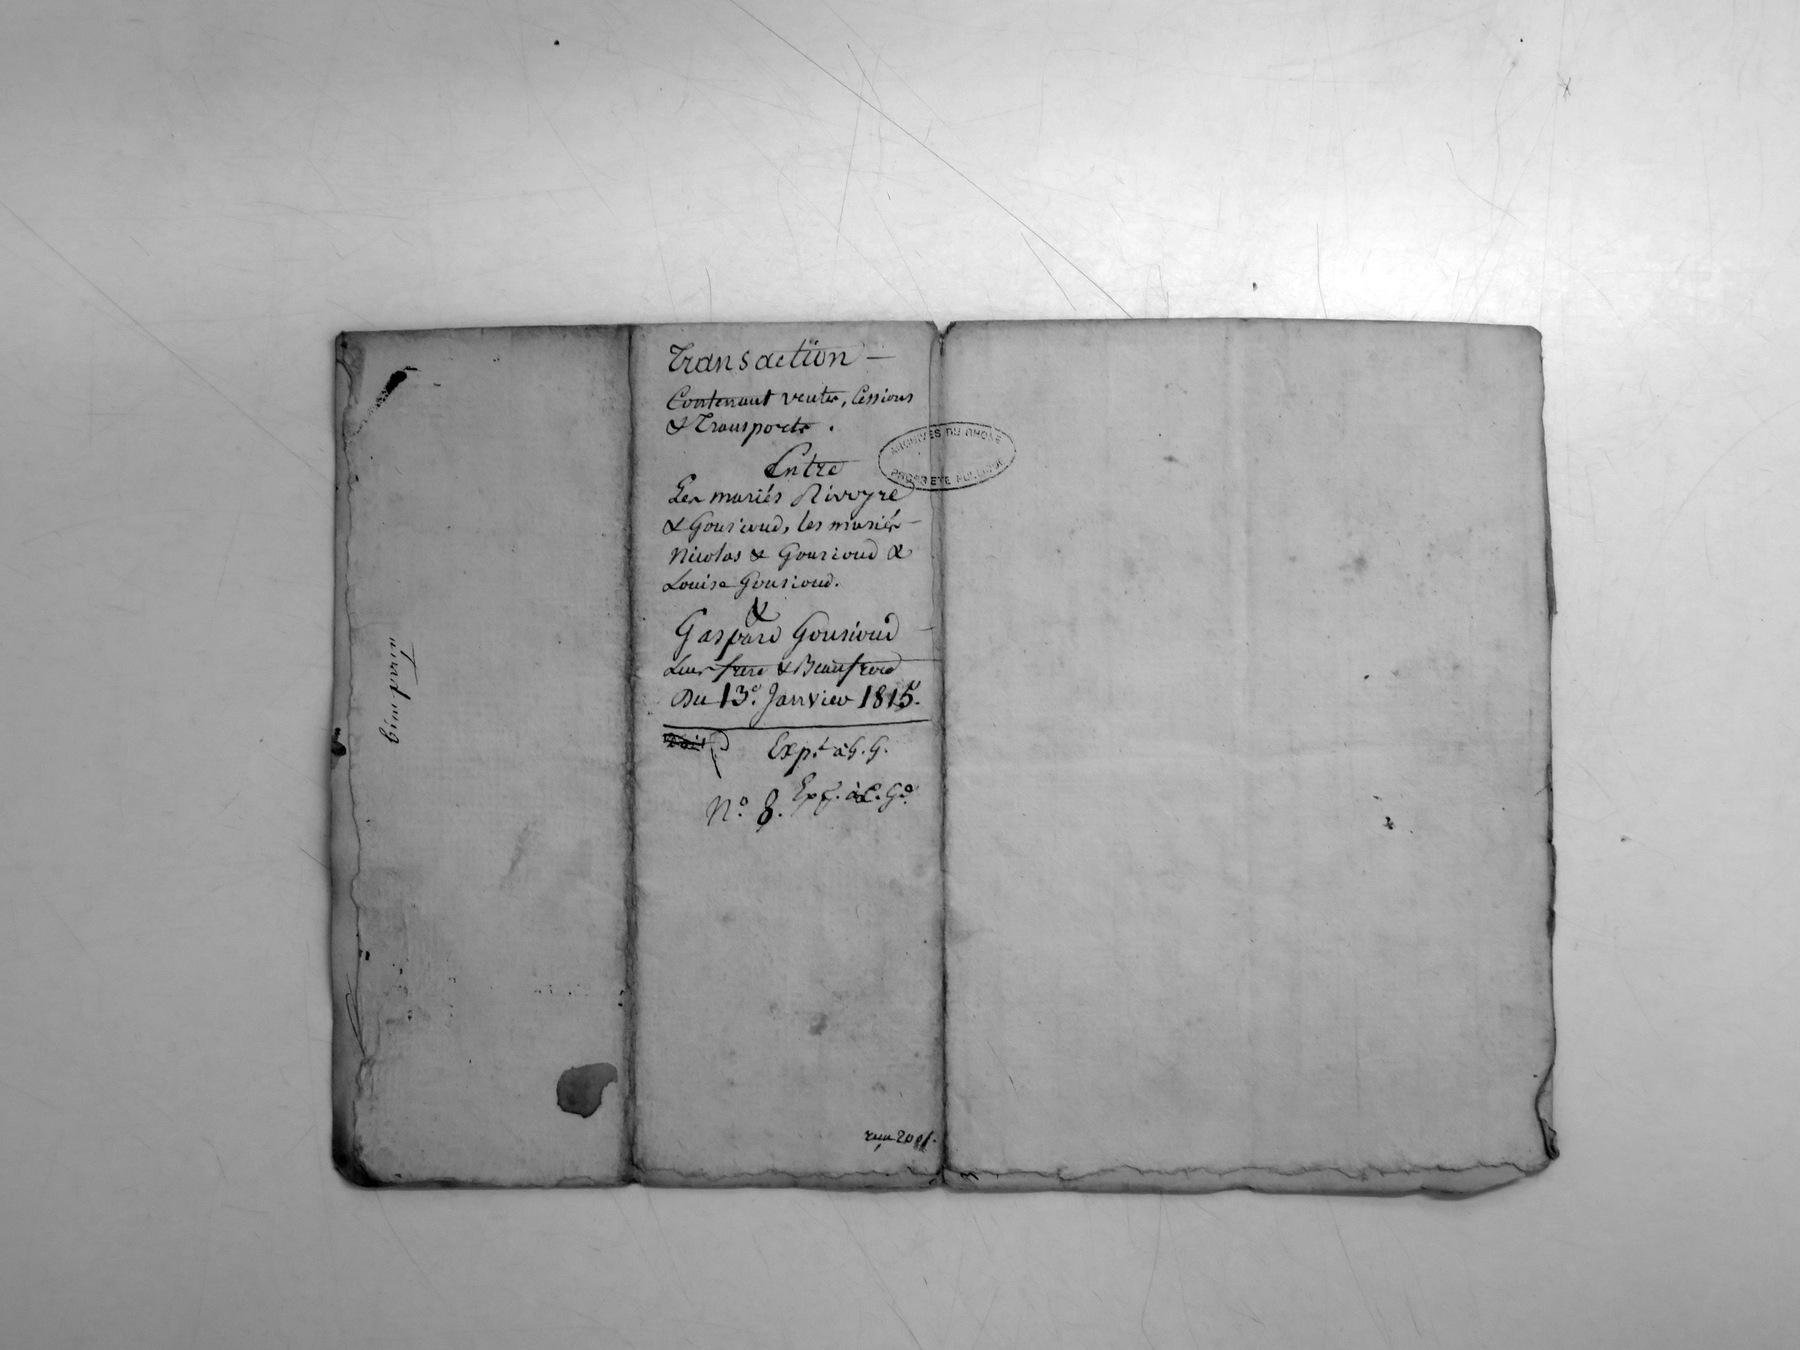 Transaction —
Contenant ventes, Cessions
& Transports.
Entre
Les mariés Rivoyre
& Gourioud, les mariés
Nicolas & Gourioud &
Louise Gourioud.
&
Gaspard Gourioud
Leur frere & Beaufrere
Du 13e. Janvier 1815.
Expé. à G. G.
No. 8. Exp. à L. Gd.
ARCHIVES DU RHONE
PROPRIETE PUBLIQUE